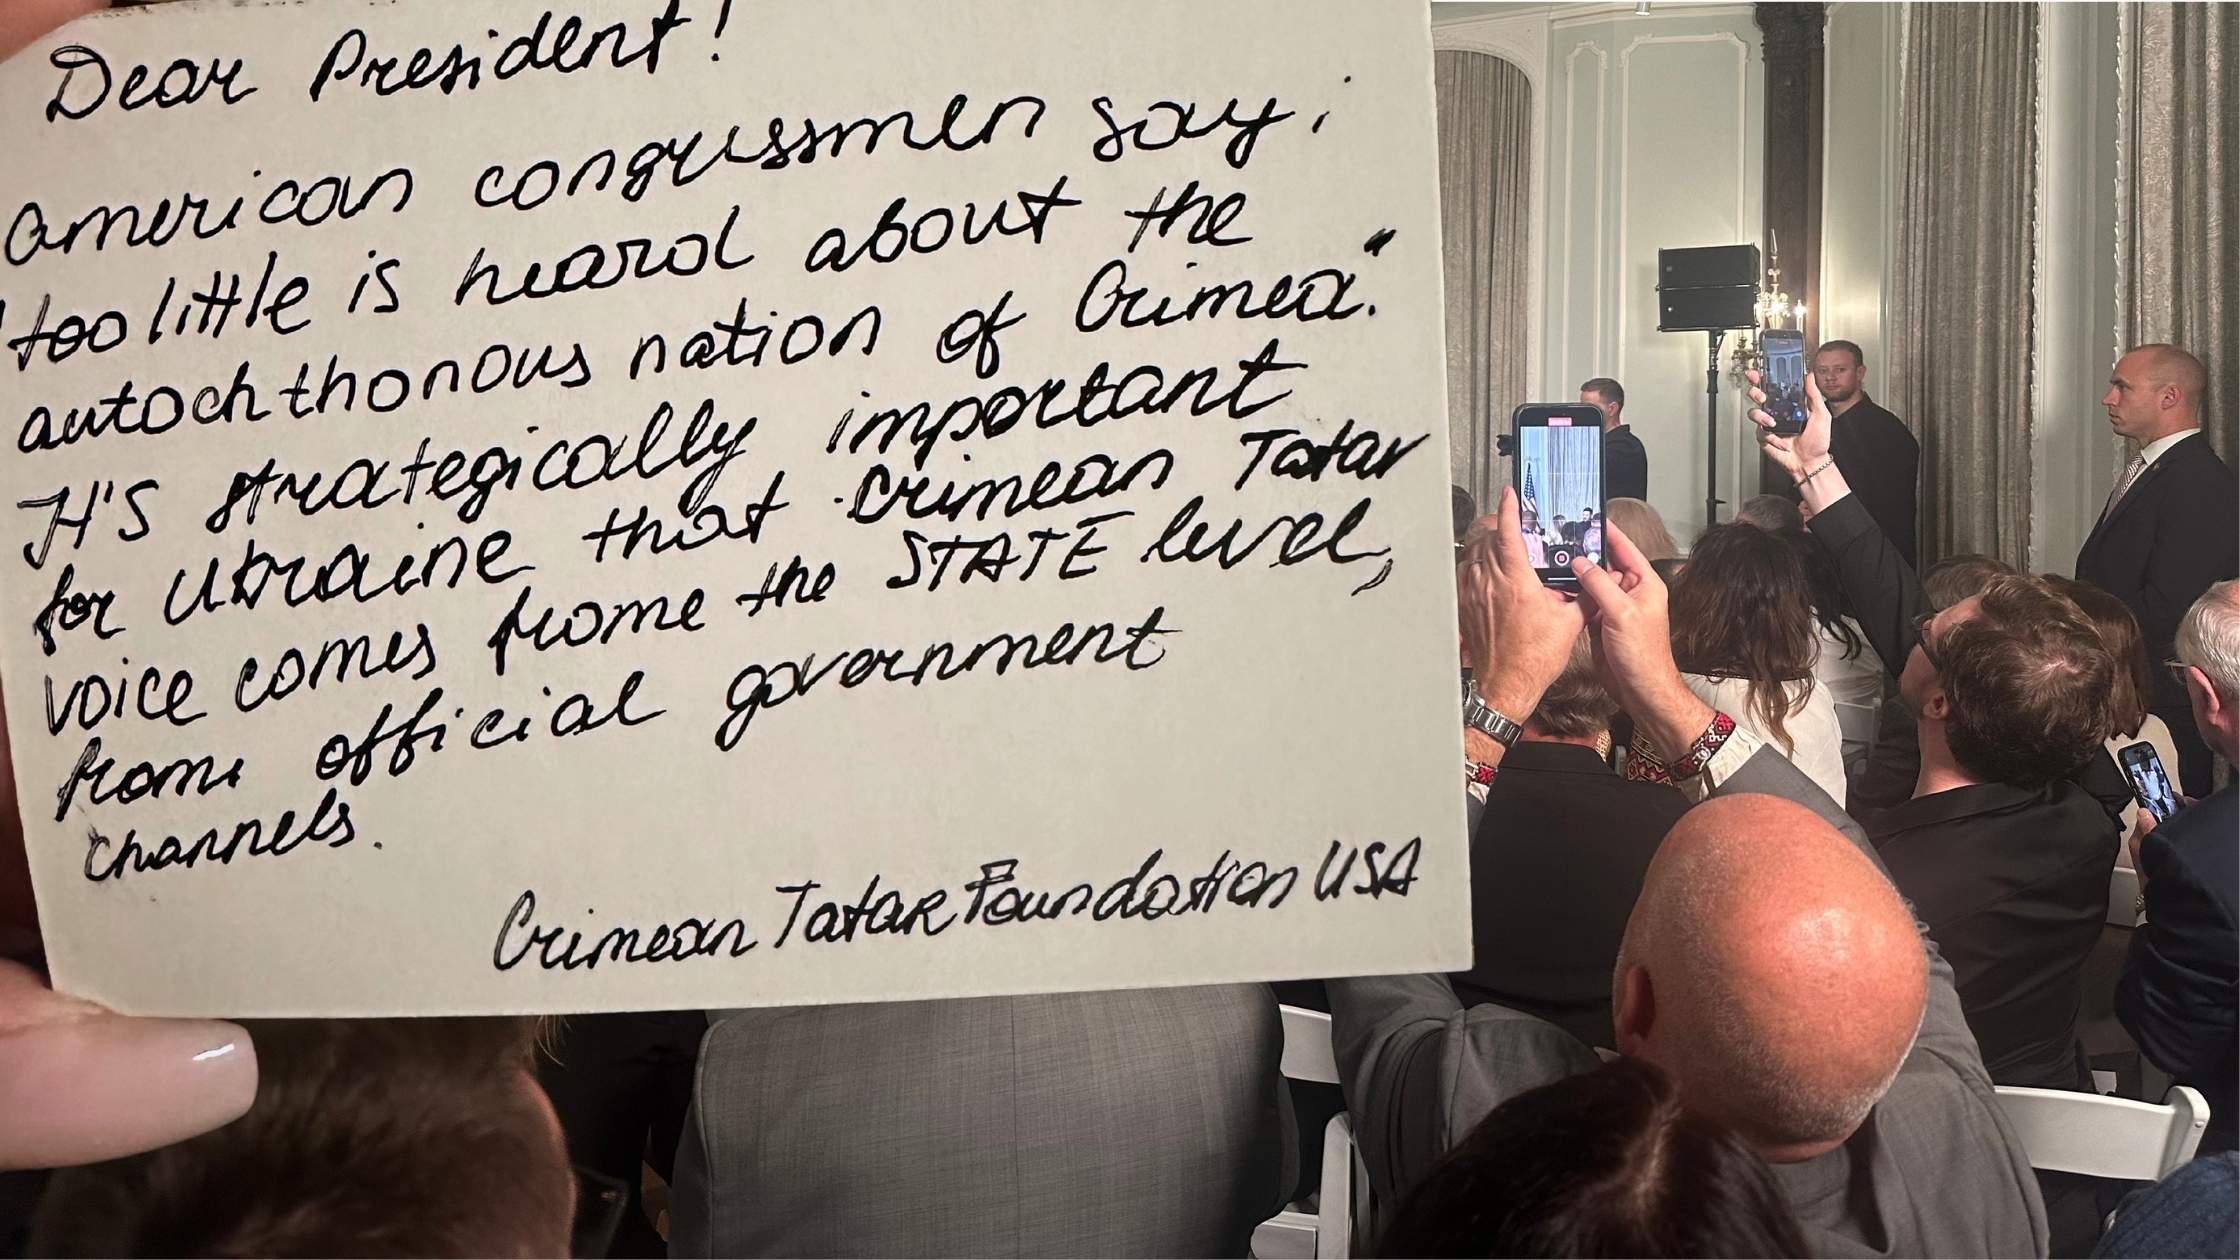 Dear President!
American congressmen say:
"too little is heard about the
autochthonous nation of Crimea."
It's strategically important
for Ukraine that Crimean Tatar
voice comes frome the STATE level,
from official government
channels.
Crimean Tatar Foundation USA